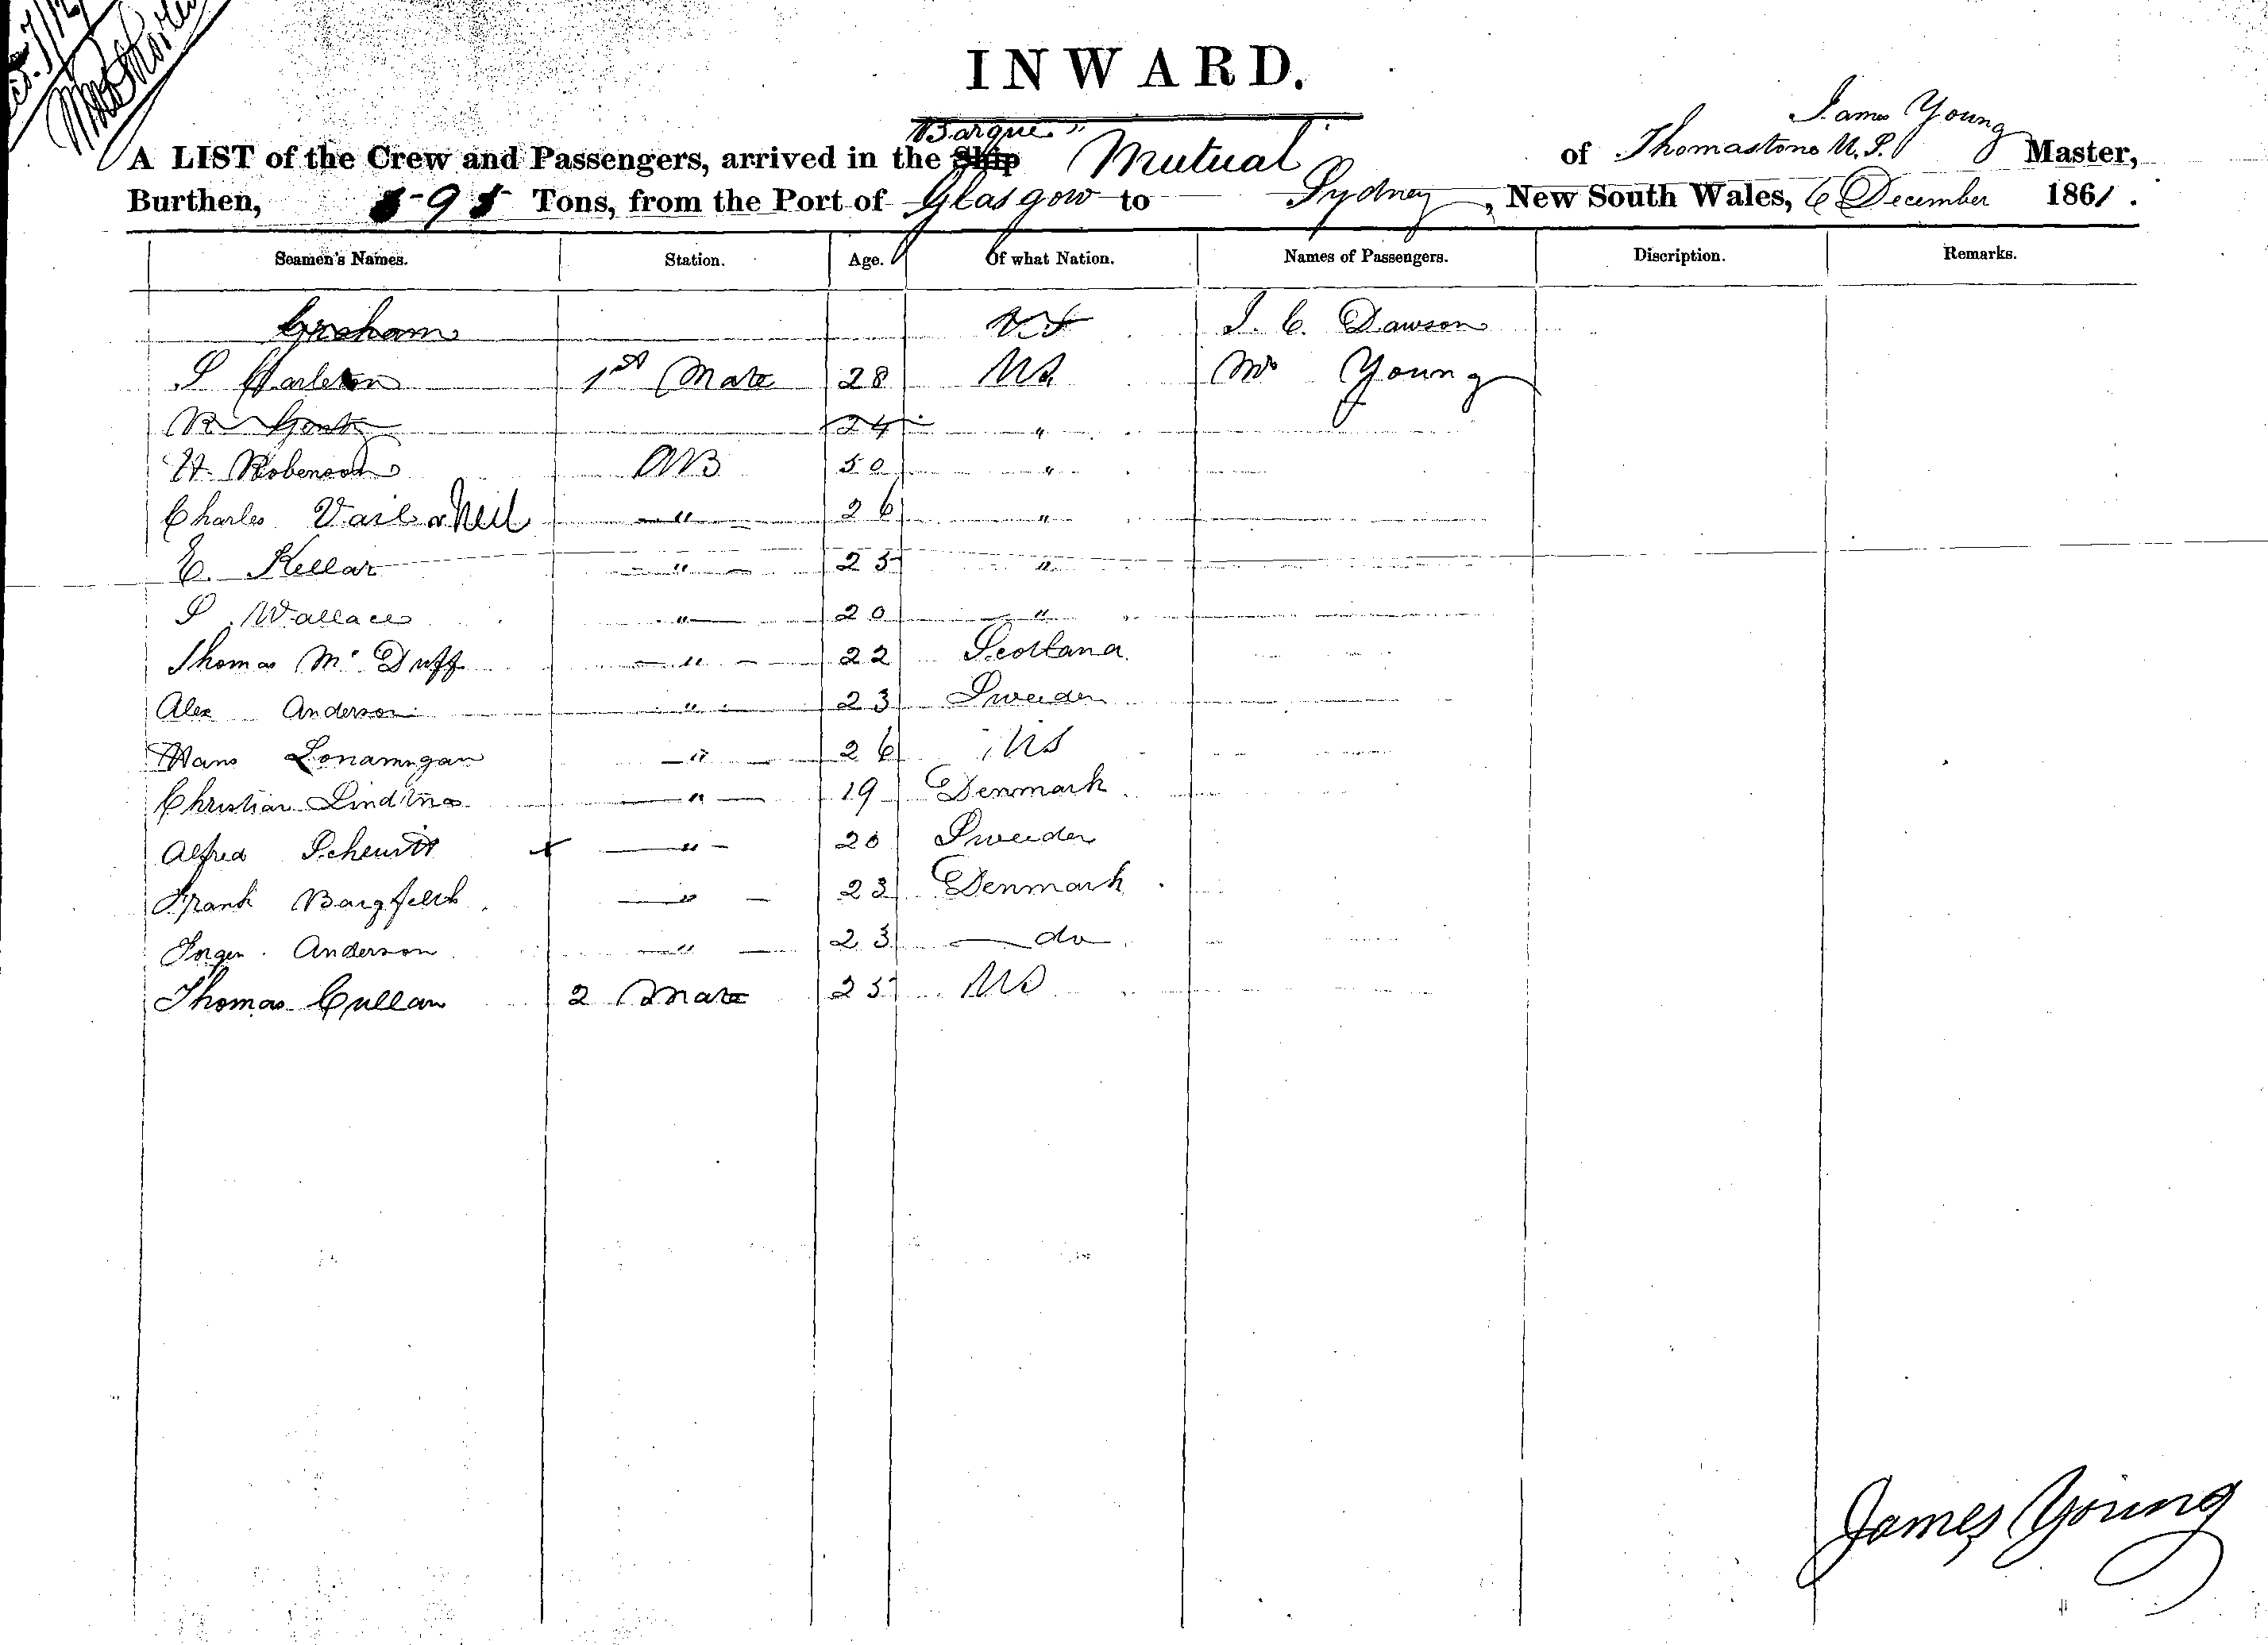 INWARD.
James Young
Barque
A LIST of the Crew and Passengers, arrived in the Ship Mutual of Thomastone U.S. Master,
Burthen, 595 Tons, from the Port of Glasgow to Sydney, New South Wales, 6 December 1861.
Seamen's Names. Station. Age. Of what Nation. Names of Passengers. Discription. Remarks.
Graham US J. C. Dawson
S Carleton 1st Mate 28 US Mrs Young
R 24 "
H. Robenson AB 50 "
Charles Vail or Neil " 26 "
E. Kellar " 25 "
S. Wallace " 20 "
Thomas Mc Duff " 22 Scotland
Alex Anderson " 23 Sweeden
Hans " 26 US
Christian " 19 Denmark
Alfred x " 20 Sweeden
Frank " 23 Denmark
Jorgen Anderson " 23 do
Thomas Cullan 2 Mate 25 US
James Young